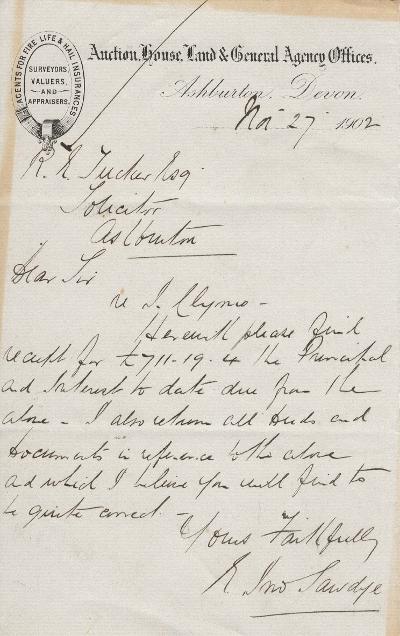 AGENTS FOR FIRE, LIFE & HAIL INSURANCES
SURVEYORS,
VALUERS,
— AND —
APPRAISERS.
Auction, House, Land & General Agency Offices,
Ashburton, Devon.
Nov 27 1902
R. E. Tucker Esq
Solicitor
Ashburton
Dear Sir
re J. Clymo -
Herewith please find
receipt for £711-19-4 the Principal
and Interest to date due from the
above - I also return all deeds and
documents in reference to the above
and which I believe you will find to
be quite correct -
Yours Faithfully
E. Jno Sawdye